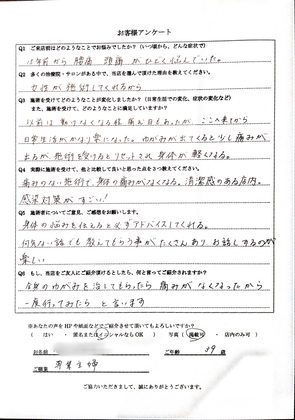 お客様アンケート
Q1 ご来店前はどのようなことでお悩みでしたか?(いつ頃から、どんな症状で)
15年前から 腰痛 頭痛 がひどく悩んでいた。
Q2 多くの治療院・サロンがある中で、当店を選んで頂けた理由を教えてください。
女性が施術してくれるから
Q3 施術を受けてどのようなことが変化しましたか?(日常生活での変化、症状の変化など)
また、施術を受けてどのようなことに満足していますか?
以前は動けなくなる程痛む日もあったが、ここへ来てから
日常生活がかなり楽になった。ゆがみが出てくると少し痛みが
出るが、施術を受けるとリセットされ身体が軽くなる。
Q4 実際に施術を受けて、他と比較して良いと思った点を3つ教えてください。
痛みのない施術で、身体の痛みがなくなる。清潔感のある店内。
感染対策がすごい!
Q5 施術者についてご意見、ご感想をお願いします。
身体の悩みを伝えると必ずアドバイスしてくれる。
何気ない話でも教えてもらう事がたくさんあり、お話しするのが
楽しい
Q6 もし、当店をご友人にご紹介頂けるとしたら、何と言ってご紹介されますか?
全身のゆがみを治してもらったら痛みがなくなったから
一度行ってみたら と言います
※あなたの声をHPや紙面などでご紹介させて頂いてもよろしいですか?
( はい ・ 匿名またはイニシャルならOK ) 写真( 掲載可 ・ 店内のみ可 )
お名前 ご年齢 39 歳
ご職業 専業主婦
ご協力いただきまして、誠にありがとうございます。